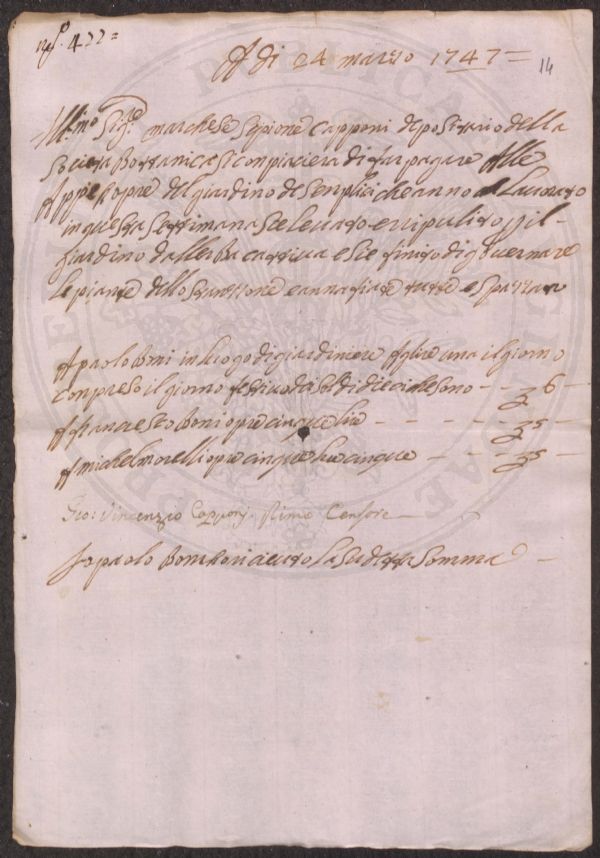 nº. 422=
A di 24 marzo 1747=
14
Ill.mo Sig.re marchese Sepione Capponi depositario della
Societa Bottanica si conpiacera di far pagare Alle
Appe hopre del giardino de Senplici che anno Lauorato
in questa settimana Scleuato e ripulito il
giardino dall erba cattiua e si e finito di gouernare
le piante dello stanzone e annafiare tutte e spazzare
A paolo Boni in luogo di giardiniere A lire una il giorno
conpreso il giorno festiuo da Soldi dieci che sono - - £ 6
A francesco Boni opre cinque lire - - - - £ 5
A michel morelli opre cinque lire cinque - - - £ 5
Gio: Vincenzio Capponj Primo Censore
Jo paolo Boni o riceuto La Sudetta Somma -